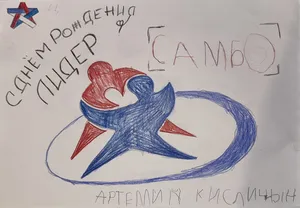 С ДНЁМ РОЖДЕНИЯ
ЛИДЕР
САМБО
АРТЕМИЙ КИСЛИЦЫН